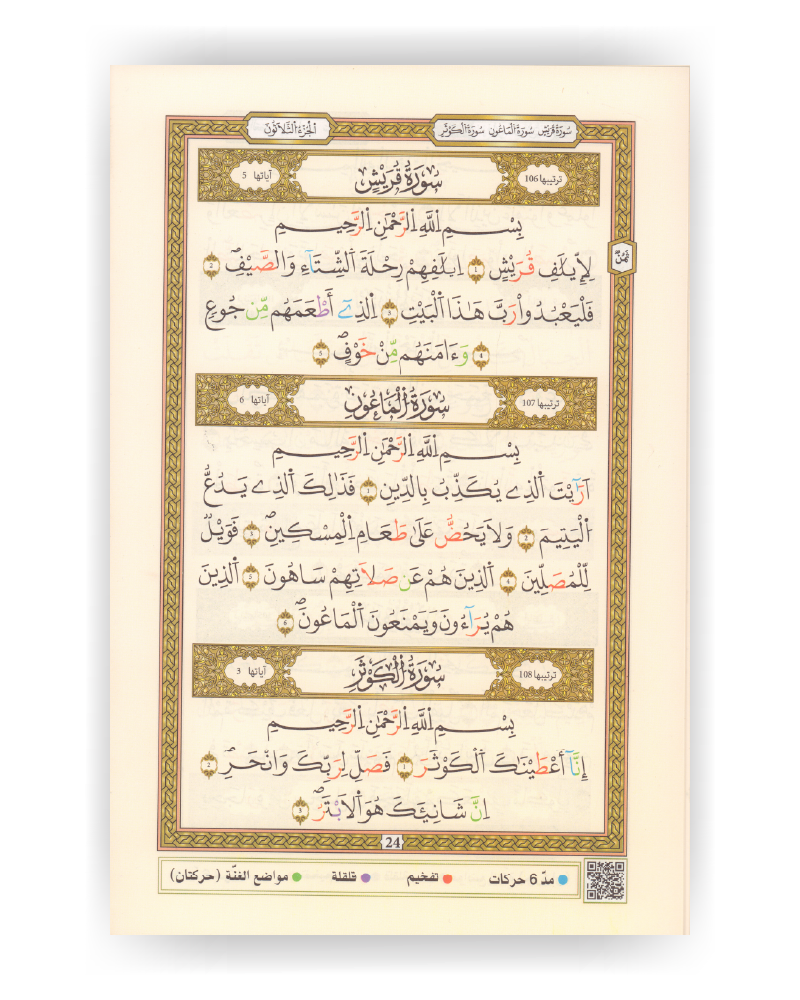 سُورَةُ قُرَيْشٍ سُورَةُ الْمَاعُونِ سُورَةُ الْكَوْثَرِ
الْجُزْءُ الثَّلَاثُونَ
ترتيبها 106
سُورَةُ قُرَيْشٍ
آياتها 5
بِسْمِ اللَّهِ الرَّحْمَٰنِ الرَّحِيمِ
ثُمُنٌ
لِإِيلَٰفِ قُرَيْشٍ 1 اِۦلَٰفِهِمْ رِحْلَةَ اَلشِّتَآءِ وَالصَّيْفِ 2
فَلْيَعْبُدُواْ رَبَّ هَٰذَا اَلْبَيْتِ 3 اِلذِےٓ أَطْعَمَهُم مِّن جُوعٍ
4 وَءَامَنَهُم مِّنْ خَوْفٍ 5
ترتيبها 107
سُورَةُ الْمَاعُونِ
آياتها 6
بِسْمِ اللَّهِ الرَّحْمَٰنِ الرَّحِيمِ
أَرَٰٓيْتَ اَلذِے يُكَذِّبُ بِالدِّينِ 1 فَذَٰلِكَ اَلذِے يَدُعُّ
اُلْيَتِيمَ 2 وَلاَ يَحُضُّ عَلَىٰ طَعَامِ اِلْمِسْكِينِ 3 فَوَيْلٌ
لِّلْمُصَلِّينَ 4 اَلذِينَ هُمْ عَن صَلاَتِهِمْ سَاهُونَ 5 اَلذِينَ
هُمْ يُرَآءُونَ وَيَمْنَعُونَ اَلْمَاعُونَ 6
ترتيبها 108
سُورَةُ الْكَوْثَرِ
آياتها 3
بِسْمِ اللَّهِ الرَّحْمَٰنِ الرَّحِيمِ
إِنَّآ أَعْطَيْنَٰكَ اَلْكَوْثَرَ 1 فَصَلِّ لِرَبِّكَ وَانْحَرِ 2
اِنَّ شَانِئَكَ هُوَ اَلاَبْتَرُ 3
24
مدّ 6 حركات تفخيم قلقلة مواضع الغنّة (حركتان)